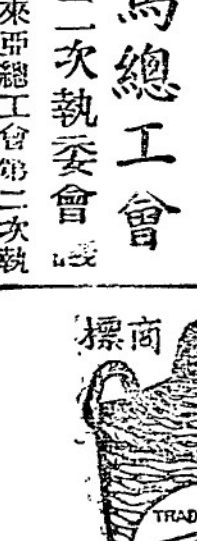 馬總工會
二次執委會議
來亞總工會第二次執
商標
TRAD